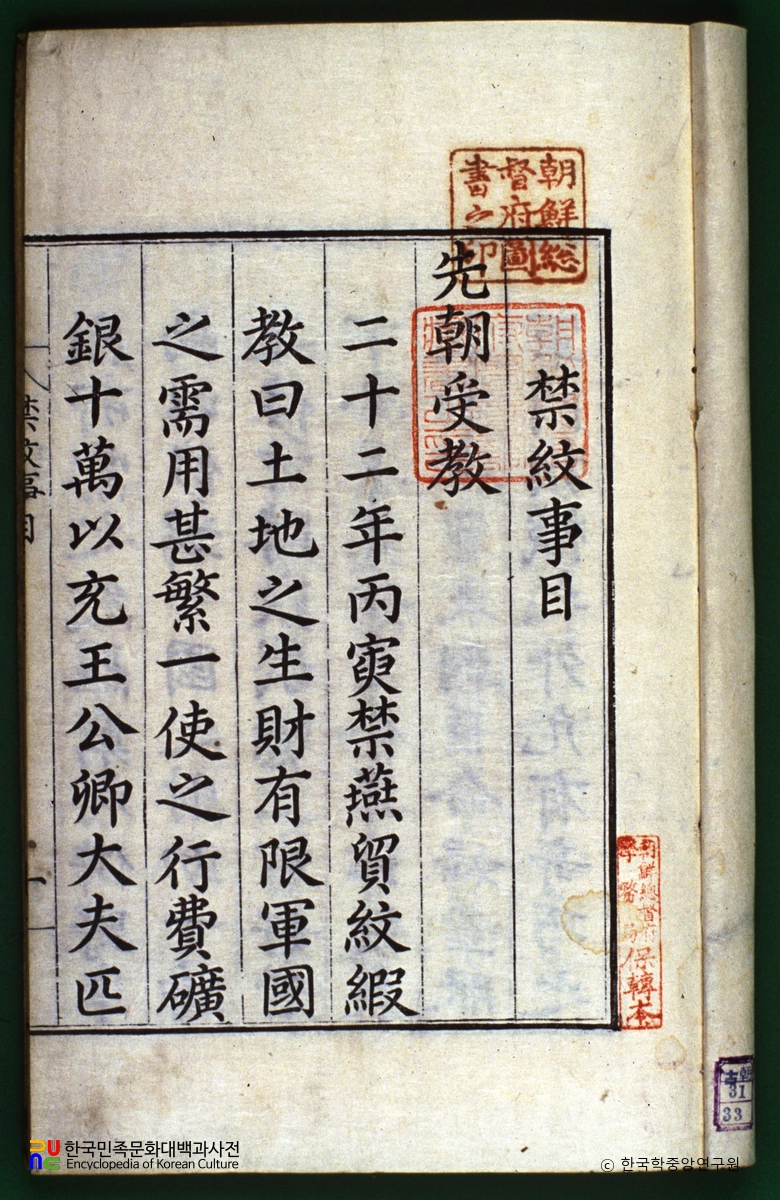 禁紋事目
先朝受教
二十二年丙寅禁燕貿紋緞
教曰土地之生財有限軍國
之需用甚繁一使之行費礦
銀十萬以充王公卿大夫匹
朝鮮総
督府圖
書之印
保轉本
31
33
한국민족문화대백과사전
Encyclopedia of Korean Culture
© 한국학중앙연구원